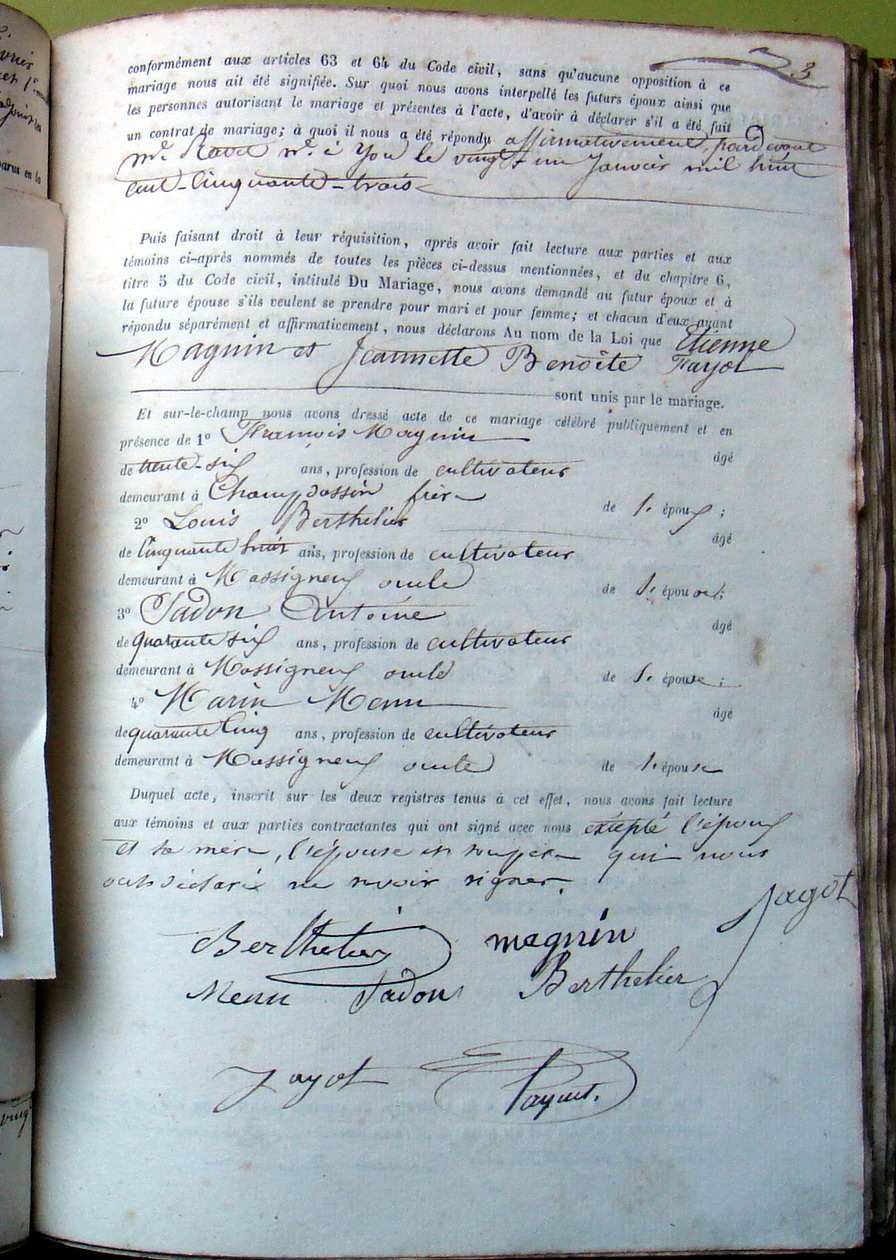 3
conformément aux articles 63 et 64 du Code civil, sans qu'aucune opposition à ce
mariage nous ait été signifiée. Sur quoi nous avons interpellé les futurs époux ainsi que
les personnes autorisant le mariage et présentes à l'acte, d'avoir à déclarer s'il a été fait
un contrat de mariage; à quoi il nous a été répondu affirmativement, pardevant
Me. Ravet Nre. à Yon le vingt un Janvier mil huit
cent-cinquante-trois
Puis faisant droit à leur réquisition, après avoir fait lecture aux parties et aux
témoins ci-après nommés de toutes les pièces ci-dessus mentionnées, et du chapitre 6,
titre 5 du Code civil, intitulé Du Mariage, nous avons demandé au futur époux et à
la future épouse s'ils veulent se prendre pour mari et pour femme; et chacun d'eux ayant
répondu séparément et affirmativement, nous déclarons Au nom de la Loi que Etienne
Magnin et Jeannette Benoîte Fayot
sont unis par le mariage.
Et sur-le-champ nous avons dressé acte de ce mariage célébré publiquement et en
présence de 1o François Magnin âgé
de trente-six ans, profession de cultivateur
demeurant à Champdossin frère de l. époux ;
2o Louis Berthelier âgé
de cinquante huit ans, profession de cultivateur
demeurant à Massigneux oncle de l. épouse;
3o Jadon Antoine âgé
de quarante six ans, profession de cultivateur
demeurant à Massigneux oncle de l. épouse ;
4o Marin Menu âgé
de quarante cinq ans, profession de cultivateur
demeurant à Massigneux oncle de l. épouse
Duquel acte, inscrit sur les deux registres tenus à cet effet, nous avons fait lecture
aux témoins et aux parties contractantes qui ont signé avec nous excepté l'époux
et sa mère, l'épouse et son père qui nous
ont déclaré ne savoir signer.
Berthelier magnin Jagot
Menu Jadon Berthelier
Jayot